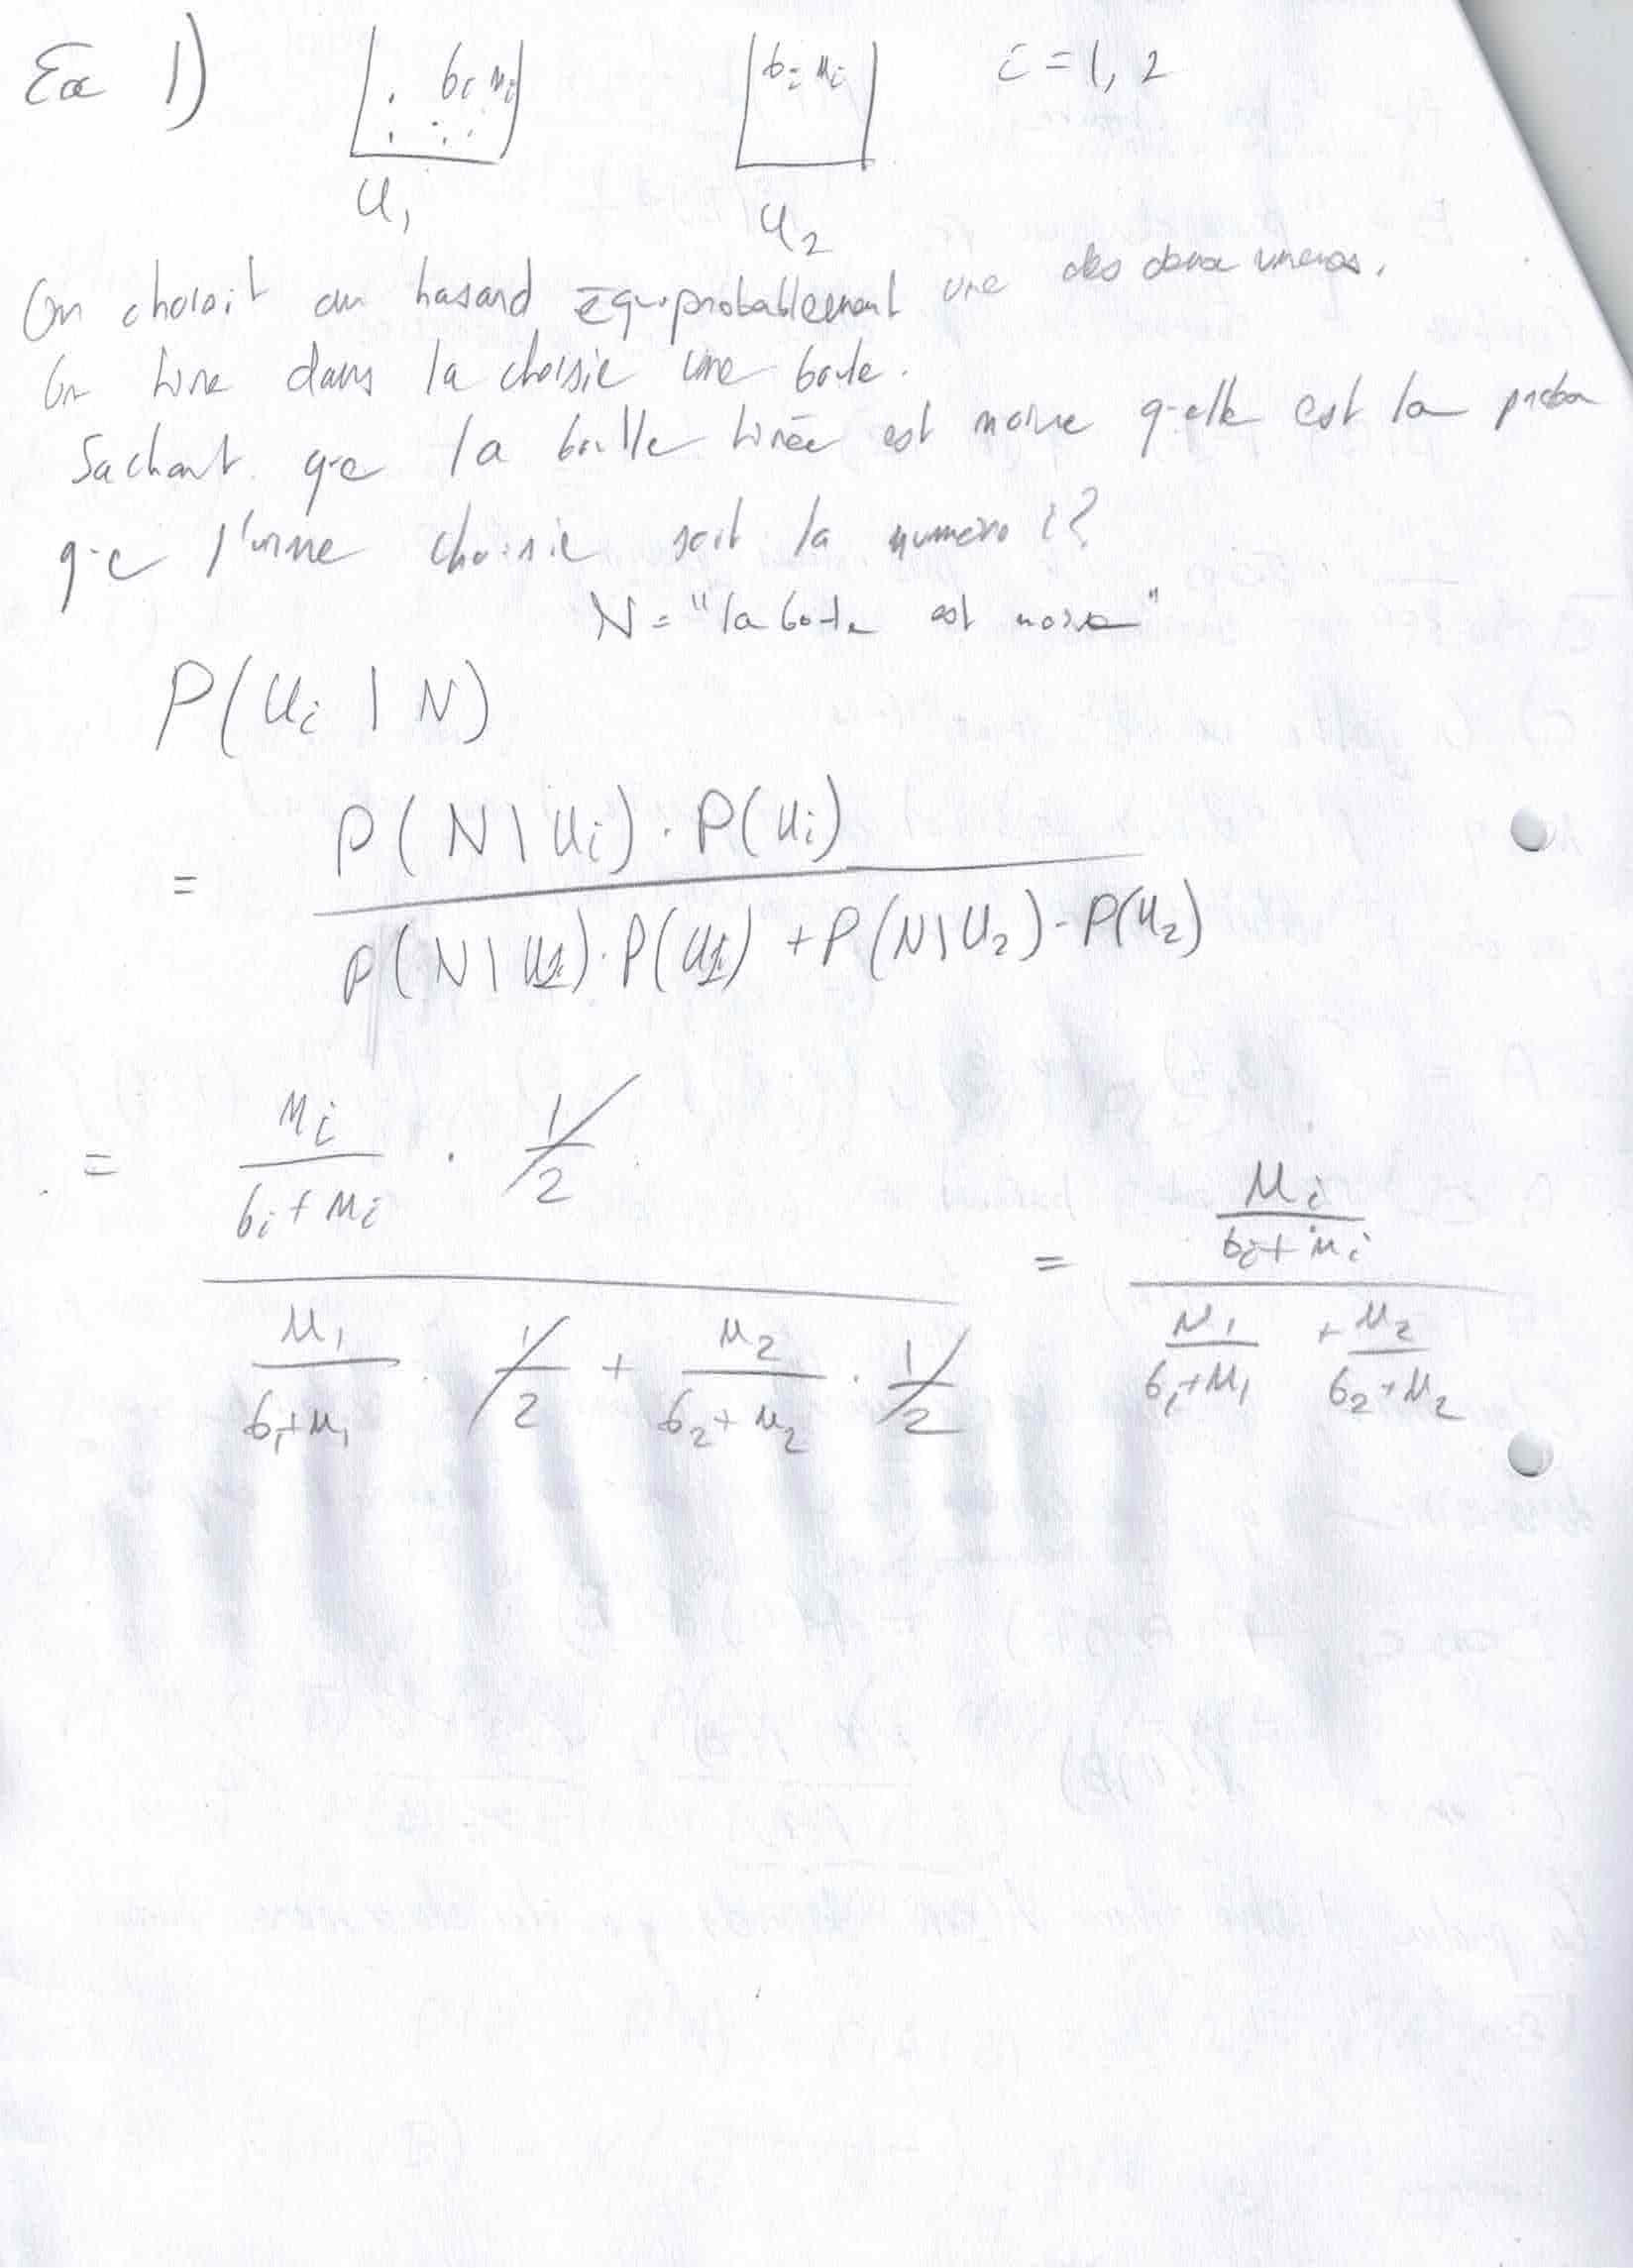 Ex 1)
bi ni
bi ni
i = 1, 2
U1
U2
On choisit au hasard équiprobablement une des deux urnes.
On tire dans la choisie une boule.
Sachant que la boulle tirée est noire quelle est la proba
que l'urne choisie soit la numéro i?
N = "la boule est noire"
P(Ui | N)
= P(N|Ui) · P(Ui) / P(N|U1) · P(U1) + P(N|U2) · P(U2)
= ni / bi + ni · 1/2 / n1 / b1+n1 · 1/2 + n2 / b2+n2 · 1/2 = ni / bi+ni / n1 / b1+n1 + n2 / b2+n2